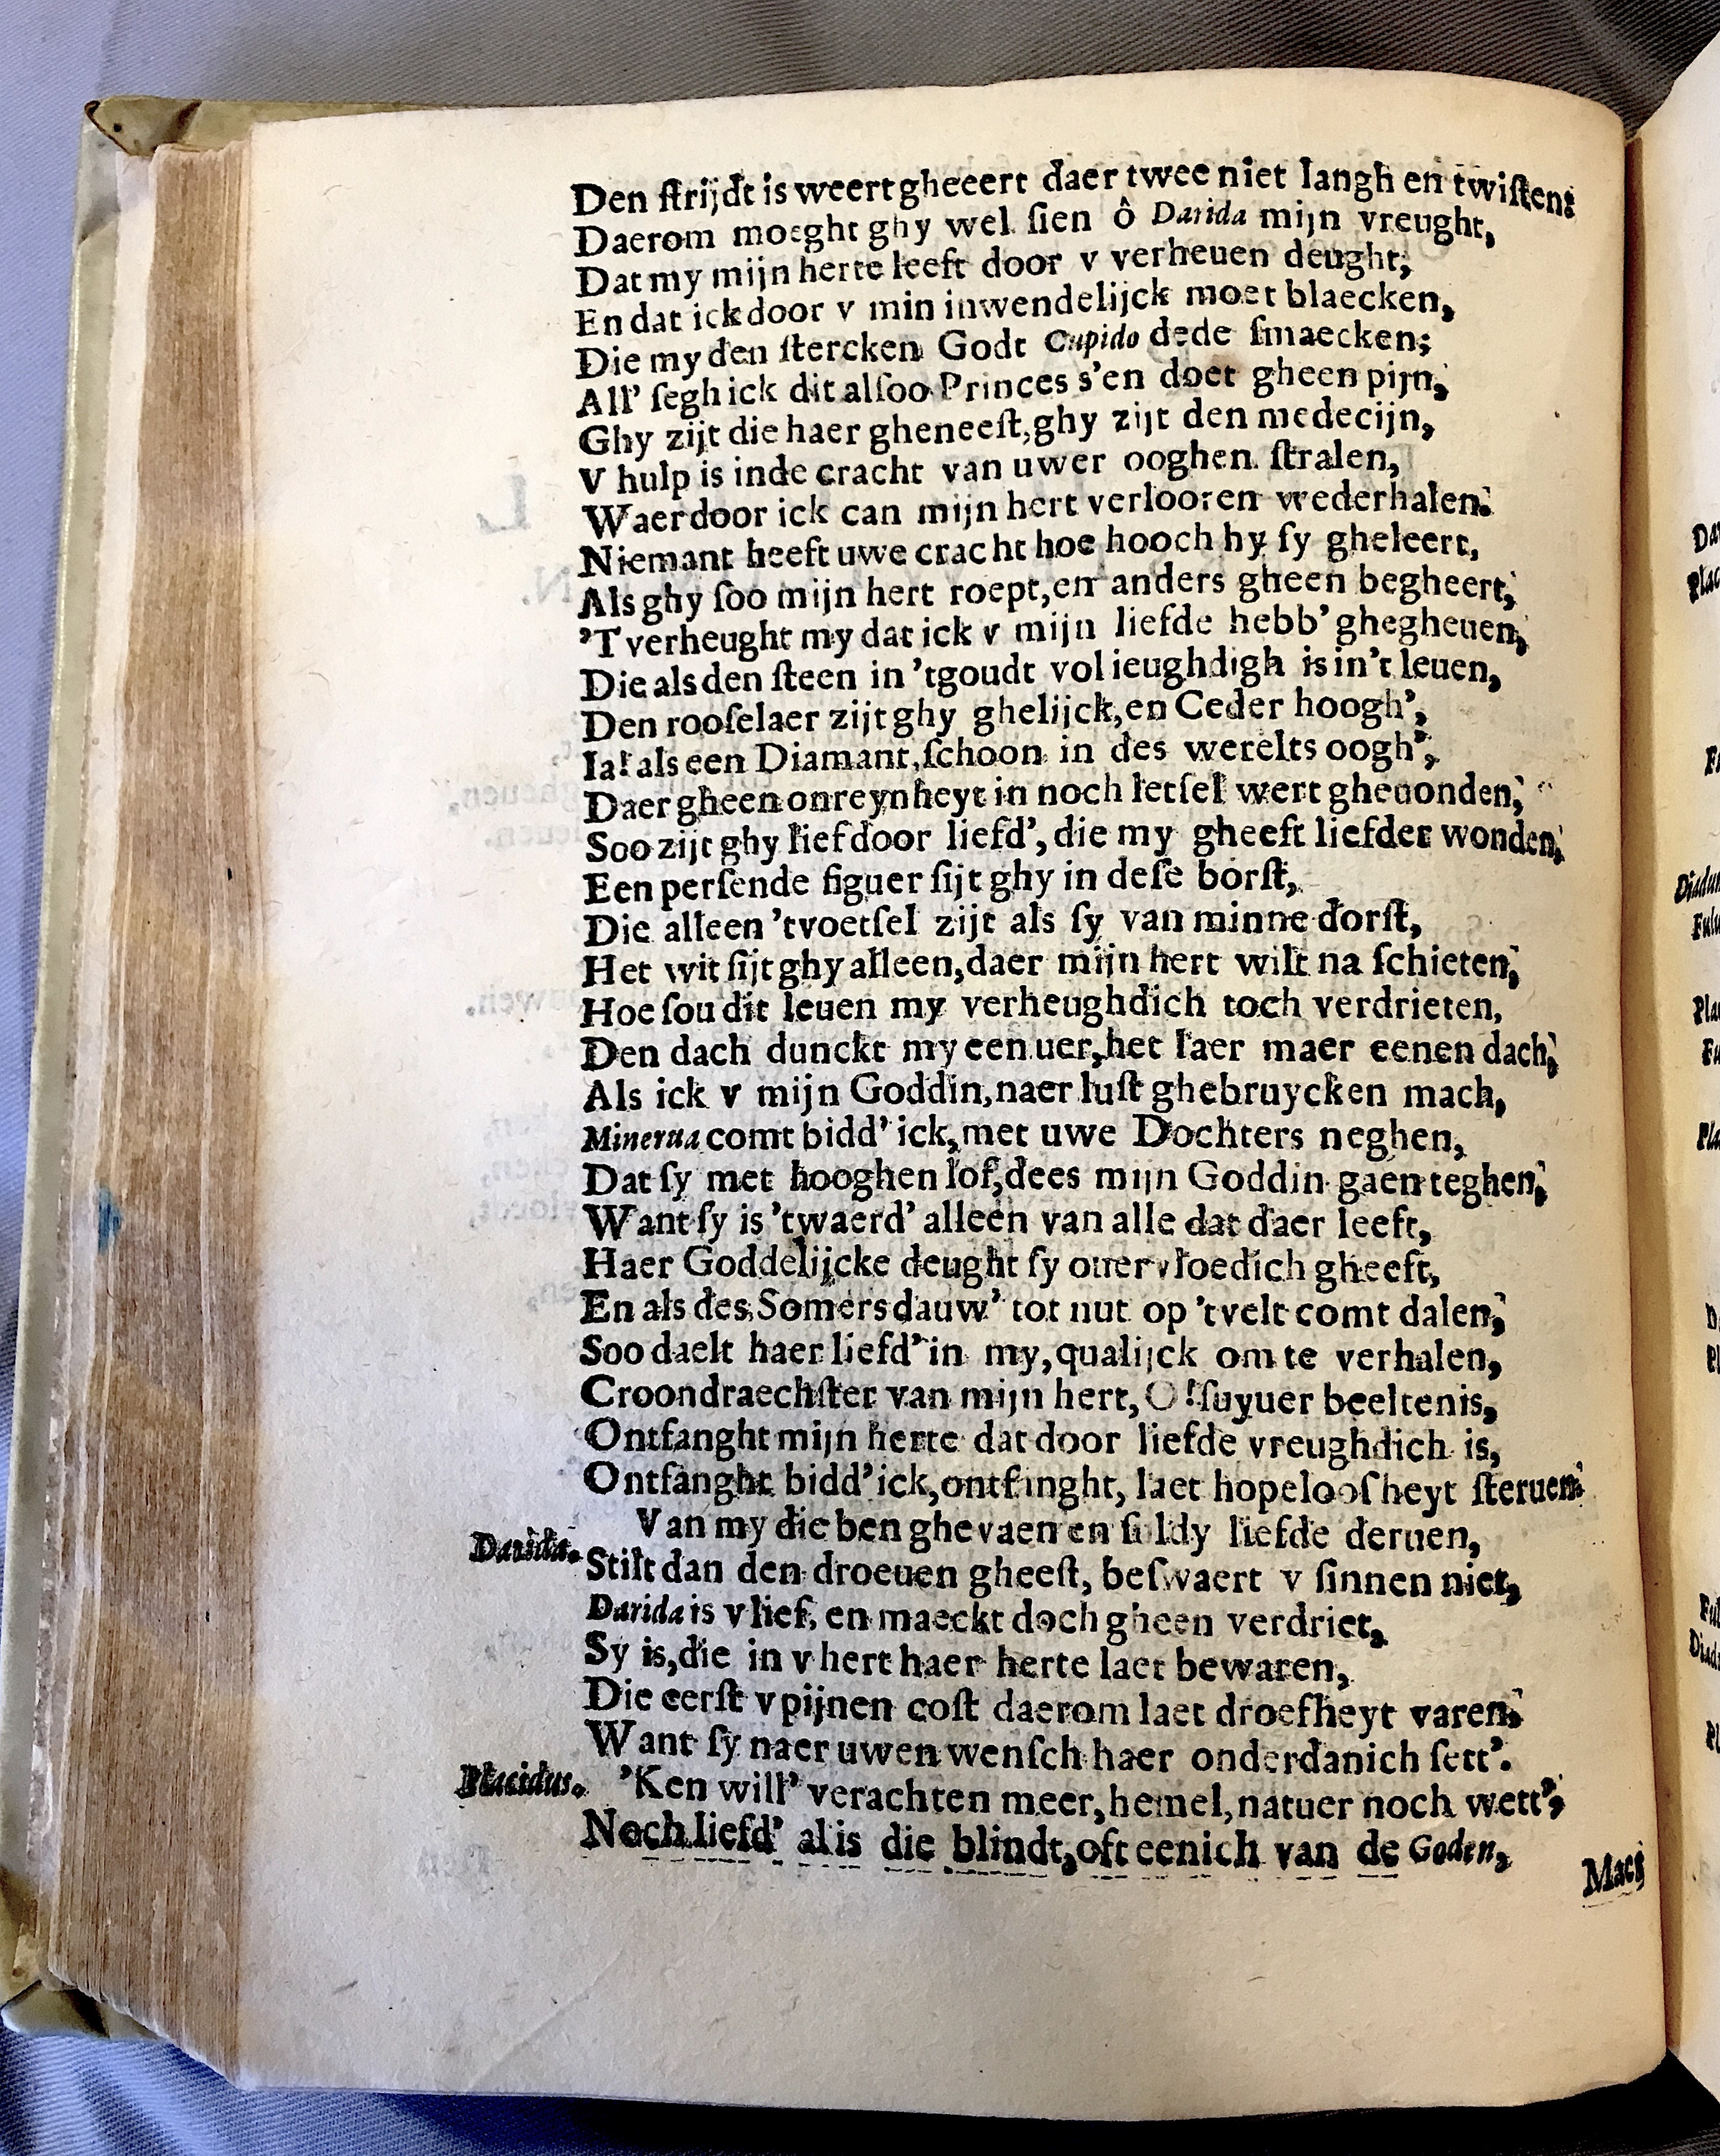 Den ſtrijdt is weert gheeert daer twee niet langh en twiſten:
Daerom moeght ghy wel ſien ô Darida mijn vreught,
Dat my mijn herte leeft door v verheuen deught;
En dat ick door v min inwendelijck moet blaecken,
Die my den ſtercken Godt Cupido dede ſmaecken;
All' ſegh ick dit alſoo Princes s'en doet gheen pijn,
Ghy zijt die haer gheneeſt, ghy zijt den medecijn,
V hulp is inde cracht van uwer ooghen ſtralen,
Waer door ick can mijn hert verlooren wederhalen.
Niemant heeft uwe cracht hoe hooch hy ſy gheleert,
Als ghy ſoo mijn hert roept, en anders gheen begheert,
'T verheught my dat ick v mijn liefde hebb' ghegheuen,
Die als den ſteen in 'tgoudt vol ieughdigh is in't leuen,
Den rooſelaer zijt ghy ghelijck, en Ceder hoogh',
Ia! als een Diamant, ſchoon in des werelts oogh',
Daer gheen onreynheyt in noch letſel wert gheuonden,
Soo zijt ghy lief door liefd', die my gheeft liefdes wonden,
Een perſende figuer ſijt ghy in deſe borſt,
Die alleen 'tvoetſel zijt als ſy van minne dorſt,
Het wit ſijt ghy alleen, daer mijn hert wilt na ſchieten,
Hoe ſou dit leuen my verheughdich toch verdrieten,
Den dach dunckt my een uer, het Iaer maer eenen dach,
Als ick v mijn Goddin, naer luſt ghebruycken mach,
Minerua comt bidd' ick, met uwe Dochters neghen,
Dat ſy met hooghen lof, dees mijn Goddin gaen teghen,
Want ſy is 'twaerd' alleen van alle dat daer leeft,
Haer Goddelijcke deught ſy ouervloedich gheeft,
En als des Somers dauw' tot nut op 'tvelt comt dalen,
Soo daelt haer liefd' in my, qualijck om te verhalen,
Croondraechſter van mijn hert, O! ſuyuer beeltenis,
Ontfanght mijn herte dat door liefde vreughdich is,
Ontfanght bidd' ick, ontfanght, laet hopelooſheyt ſteruen
Van my die ben ghevaen en ſuldy liefde deruen,
Darida. Stilt dan den droeuen gheeſt, beſwaert v ſinnen niet,
Darida is v lief, en maeckt doch gheen verdriet,
Sy is, die in v hert haer herte laet bewaren,
Die eerſt v pijnen coſt daerom laet droefheyt varen,
Want ſy naer uwen wenſch haer onderdanich ſett'.
Placidus. 'Ken will' verachten meer, hemel, natuer noch wett',
Noch liefd' al is die blindt, oft eenich van de Goden,
Maer